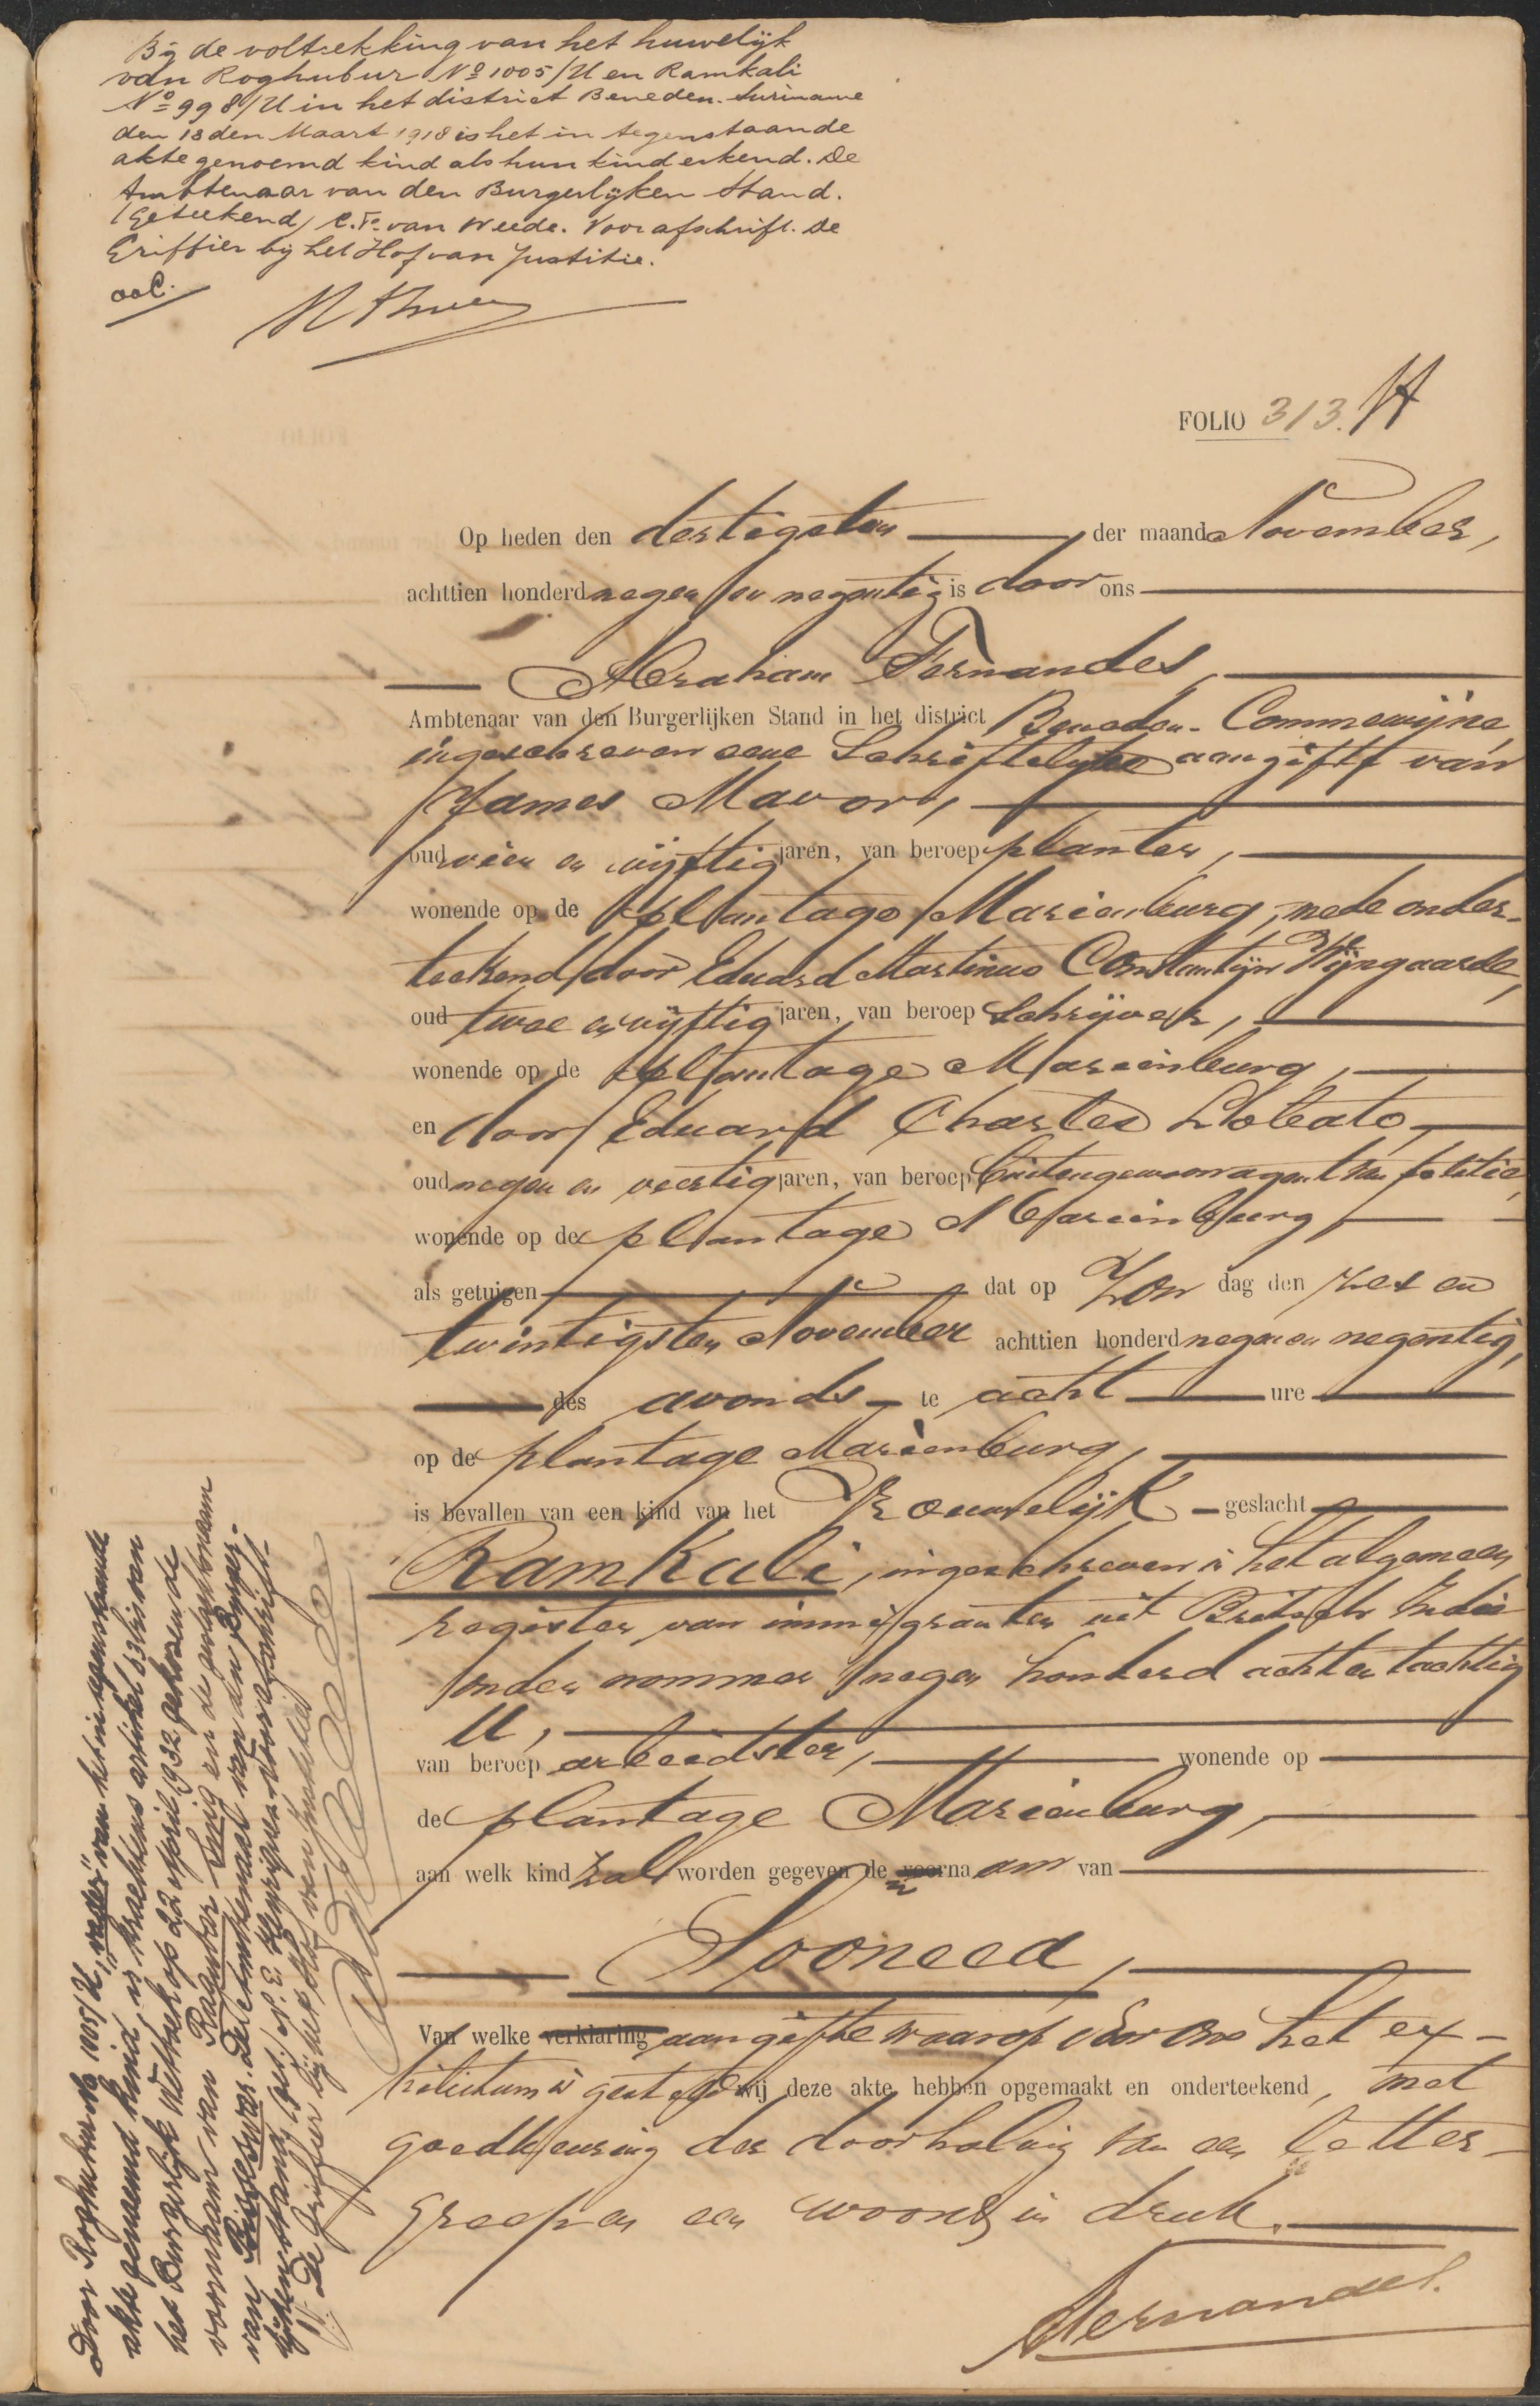 Bij de voltrekking van het huwelijk
van Roghubur No 1005/U en Ramkali
No 998/U in het district Beneden-Suriname
den 13den Maart 1918 is het in tegenstaande
akte genoemd kind als hun kind erkend. De
Ambtenaar van den Burgerlijken Stand.
(Geteekend) C. F. van Weede. Voor afschrift. De
Griffier bij het Hof van Justitie.
FOLIO 313.
Op heden den dertigsten der maand November,
achttien honderd negen en negentig is door ons
Abraham Fernandes,
Ambtenaar van den Burgerlijken Stand in het district Beneden-Commewijne,
ingeschreven eene Schriftelijke aangifte van
James Mavor,
oud vier en vijftig jaren, van beroep planter,
wonende op de plantage Mariënburg, mede onder-
teekend door Eduard Martinus Constantijn Wijngaarde,
oud twee en vijftig jaren, van beroep Schrijver,
wonende op de plantage Mariënburg,
en door Eduard Charles Lobato,
oud negen en veertig jaren, van beroep buitengewoon agent van politie,
wonende op de plantage Mariënburg,
als getuigen dat op Zon dag den zes en
twintigsten November achttien honderd negen en negentig,
des avonds te acht ure
op de plantage Mariënburg,
is bevallen van een kind van het Vrouwelijk geslacht
Ramkali, ingeschreven in het algemeen
register van immigranten uit Britsch Indië
onder nommer negen honderd acht en tachtig
U,
van beroep arbeidster, wonende op
de plantage Mariënburg,
aan welk kind zal worden gegeven de voorna am van
Sooneea,
Van welke verklaring aangifte waarop door ons het ex-
hibitum is gesteld wij deze akte hebben opgemaakt en onderteekend, met
goedkeuring der doorhaling van een letter-
greep en een woord in druk.
AFernandes.
Door Roghubur No 1005/U, "vader" van het in nevenstaande
akte genoemd kind, is krachtens artikel 63 bis van
het Burgerlijk Wetboek op 22 April 1932 gekozen de
voornaam van
van den Burger-
lijken Stand
De Griffier bij het Hof van Justitie,